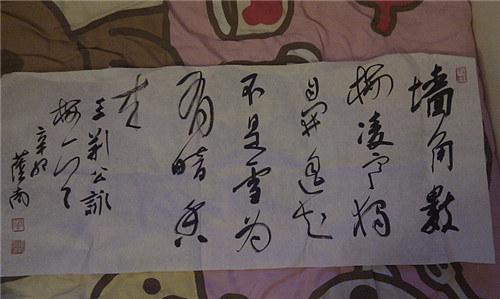 墙角數
梅凌寒独
自开遥知
不是雪为
有暗香
来
王荆公詠
梅一首
辛卯